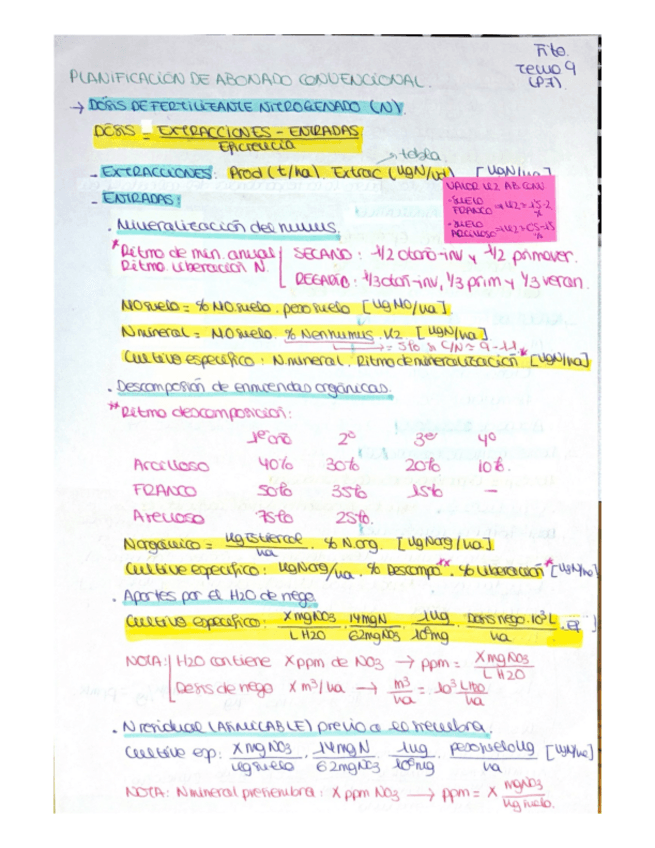 Fito.
Tema 9
(P7).
PLANIFICACIÓN DE ABONADO CONVENCIONAL.
→ DÓSIS DE FERTILIZANTE NITROGENADO (N).
DÓSIS = EXTRACCIONES - ENTRADAS
Eficiencia
- EXTRACCIONES: Prod (t/ha). Extrac (kgN/ud) → tabla [kgN/ha]
- ENTRADAS:
VALOR K2 AB CONV
- SUELO
FRANCO ⇒ K2 > 1.5-2
%
- SUELO
ARCILLOSO ⇒ K2 > 0.5-1.5
%
. Mineralización del humus.
* Ritmo de min. anual
Ritmo liberación N.
SECANO: 1/2 otoño-inv y 1/2 primaver.
REGADÍO: 1/3 otoñ-inv, 1/3 prim y 1/3 veran.
MO suelo = % MO suelo . peso suelo [kgMO/ha]
N mineral = MO suelo . % N en humus . K2 [kgN/ha]
→ = 5% si C/N = 9-11
Cultivo específico: N mineral . Ritmo de mineralización * [kgN/ha]
. Descomposión de enmiendas orgánicas.
** Ritmo descomposicion:
1er año 2º 3er 4º
Arcilloso 40% 30% 20% 10%.
FRANCO 50% 35% 15% -
Arenoso 75% 25%.
N orgánico = kg Estiércol/ha . % N org. [kgNorg/ha]
Cultivo específico: kgNorg/ha . % Descomp ** . % Liberación * [kgN/ha]
. Aportes por el H2O de riego.
Cultivo específico: X mgNO3/L H2O . 14mgN/62mgNO3 . 1kg/10⁶mg . Dosis riego . 10³L/ha . EF. ]
NOTA: H2O contiene X ppm de NO3 → ppm = X mgNO3/L H2O
Dosis de riego X m³/ha → m³/ha = 10³ L H2O/ha
. N residual (ASIMILABLE) previo a la siembra.
Cultivo esp: X mgNO3/kg suelo . 14mgN/62mgNO3 . 1kg/10⁶mg . peso suelo kg/ha [kgN/ha]
NOTA: N mineral presiembra: X ppm NO3 → ppm = X mgNO3/kg suelo.